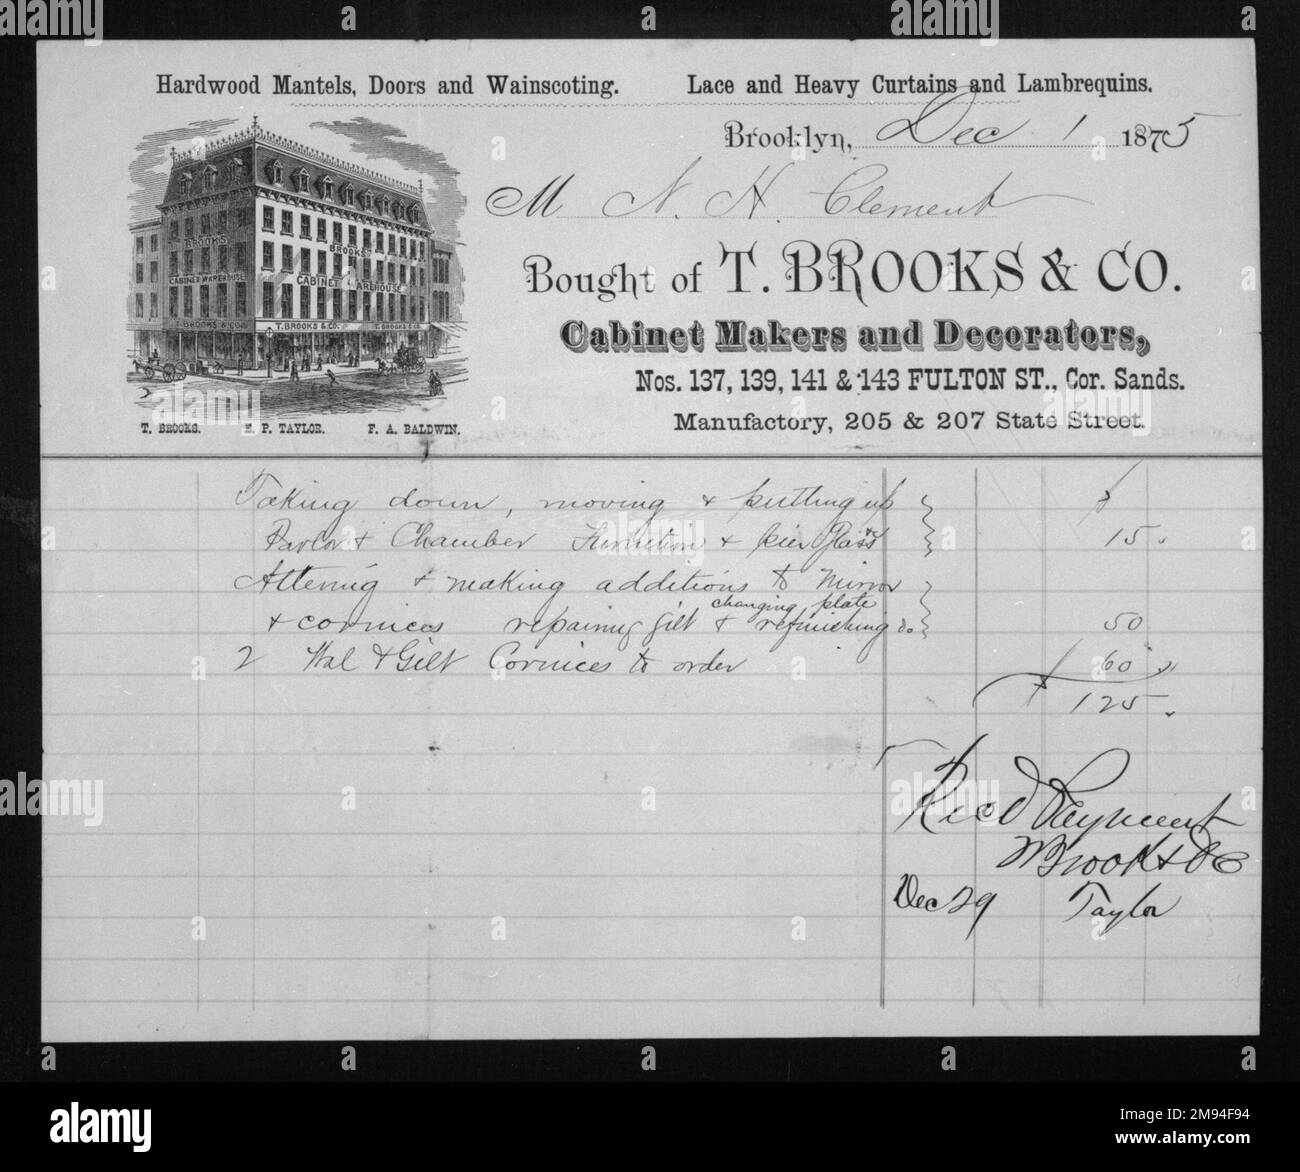 Hardwood Mantels, Doors and Wainscoting. Lace and Heavy Curtains and Lambrequins.
Brooklyn, Dec 1 1875
M N. H. Clement
Bought of T. BROOKS & CO.
Cabinet Makers and Decorators,
Nos. 137, 139, 141 & 143 FULTON ST., Cor. Sands.
Manufactory, 205 & 207 State Street.
BROOKS
BROOKS
CABINET WAREHOUSE
CABINET WAREHOUSE
T. BROOKS & CO. T. BROOKS & CO. T. BROOKS & CO.
T. BROOKS. E. P. TAYLOR. F. A. BALDWIN.
Taking down, moving & putting up $
Parlor & Chamber Furniture & pier Glass 15
Altering & making additions to Mirror
changing plate
& cornices repairing gilt & refinishing do 50
2 Wal & Gilt Cornices to order 60
$ 125
Recd Payment
T Brooks & Co
Dec 29 Taylor
alamy
Image ID: 2M94F94
www.alamy.com